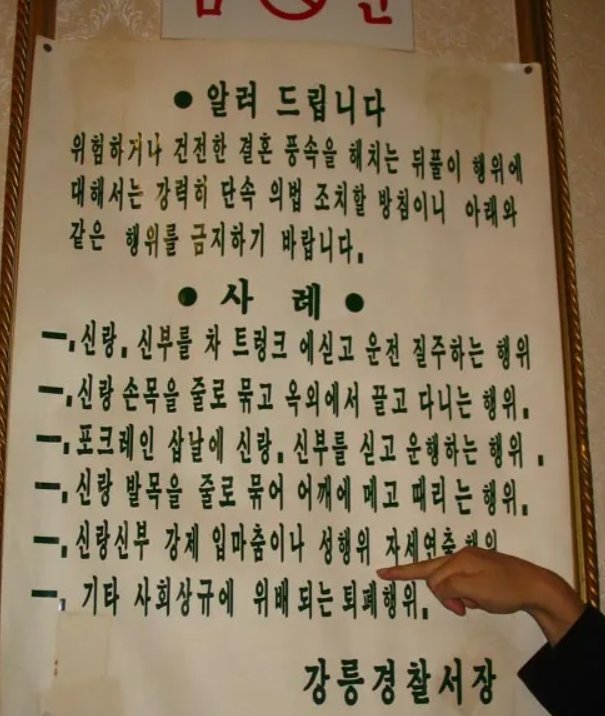 ● 알려 드립니다
위험하거나 건전한 결혼 풍속을 해치는 뒤풀이 행위에
대해서는 강력히 단속 의법 조치할 방침이니 아래와
같은 행위를 금지하기 바랍니다.
● 사 례 ●
一. 신랑. 신부를 차 트렁크 에싣고 운전 질주하는 행위
一. 신랑 손목을 줄로 묶고 옥외에서 끌고 다니는 행위.
一. 포크레인 삽날에 신랑. 신부를 싣고 운행하는 행위 .
一. 신랑 발목을 줄로 묶어 어깨에 메고 때리는 행위.
一. 신랑신부 강제 입마춤이나 성행위 자세연출 행위
一. 기타 사회상규에 위배되는 퇴폐행위.
강릉경찰서장